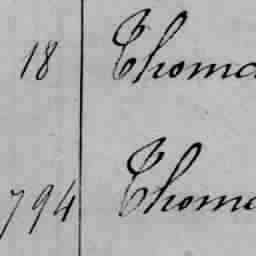 18 Thoma
794 Thoma